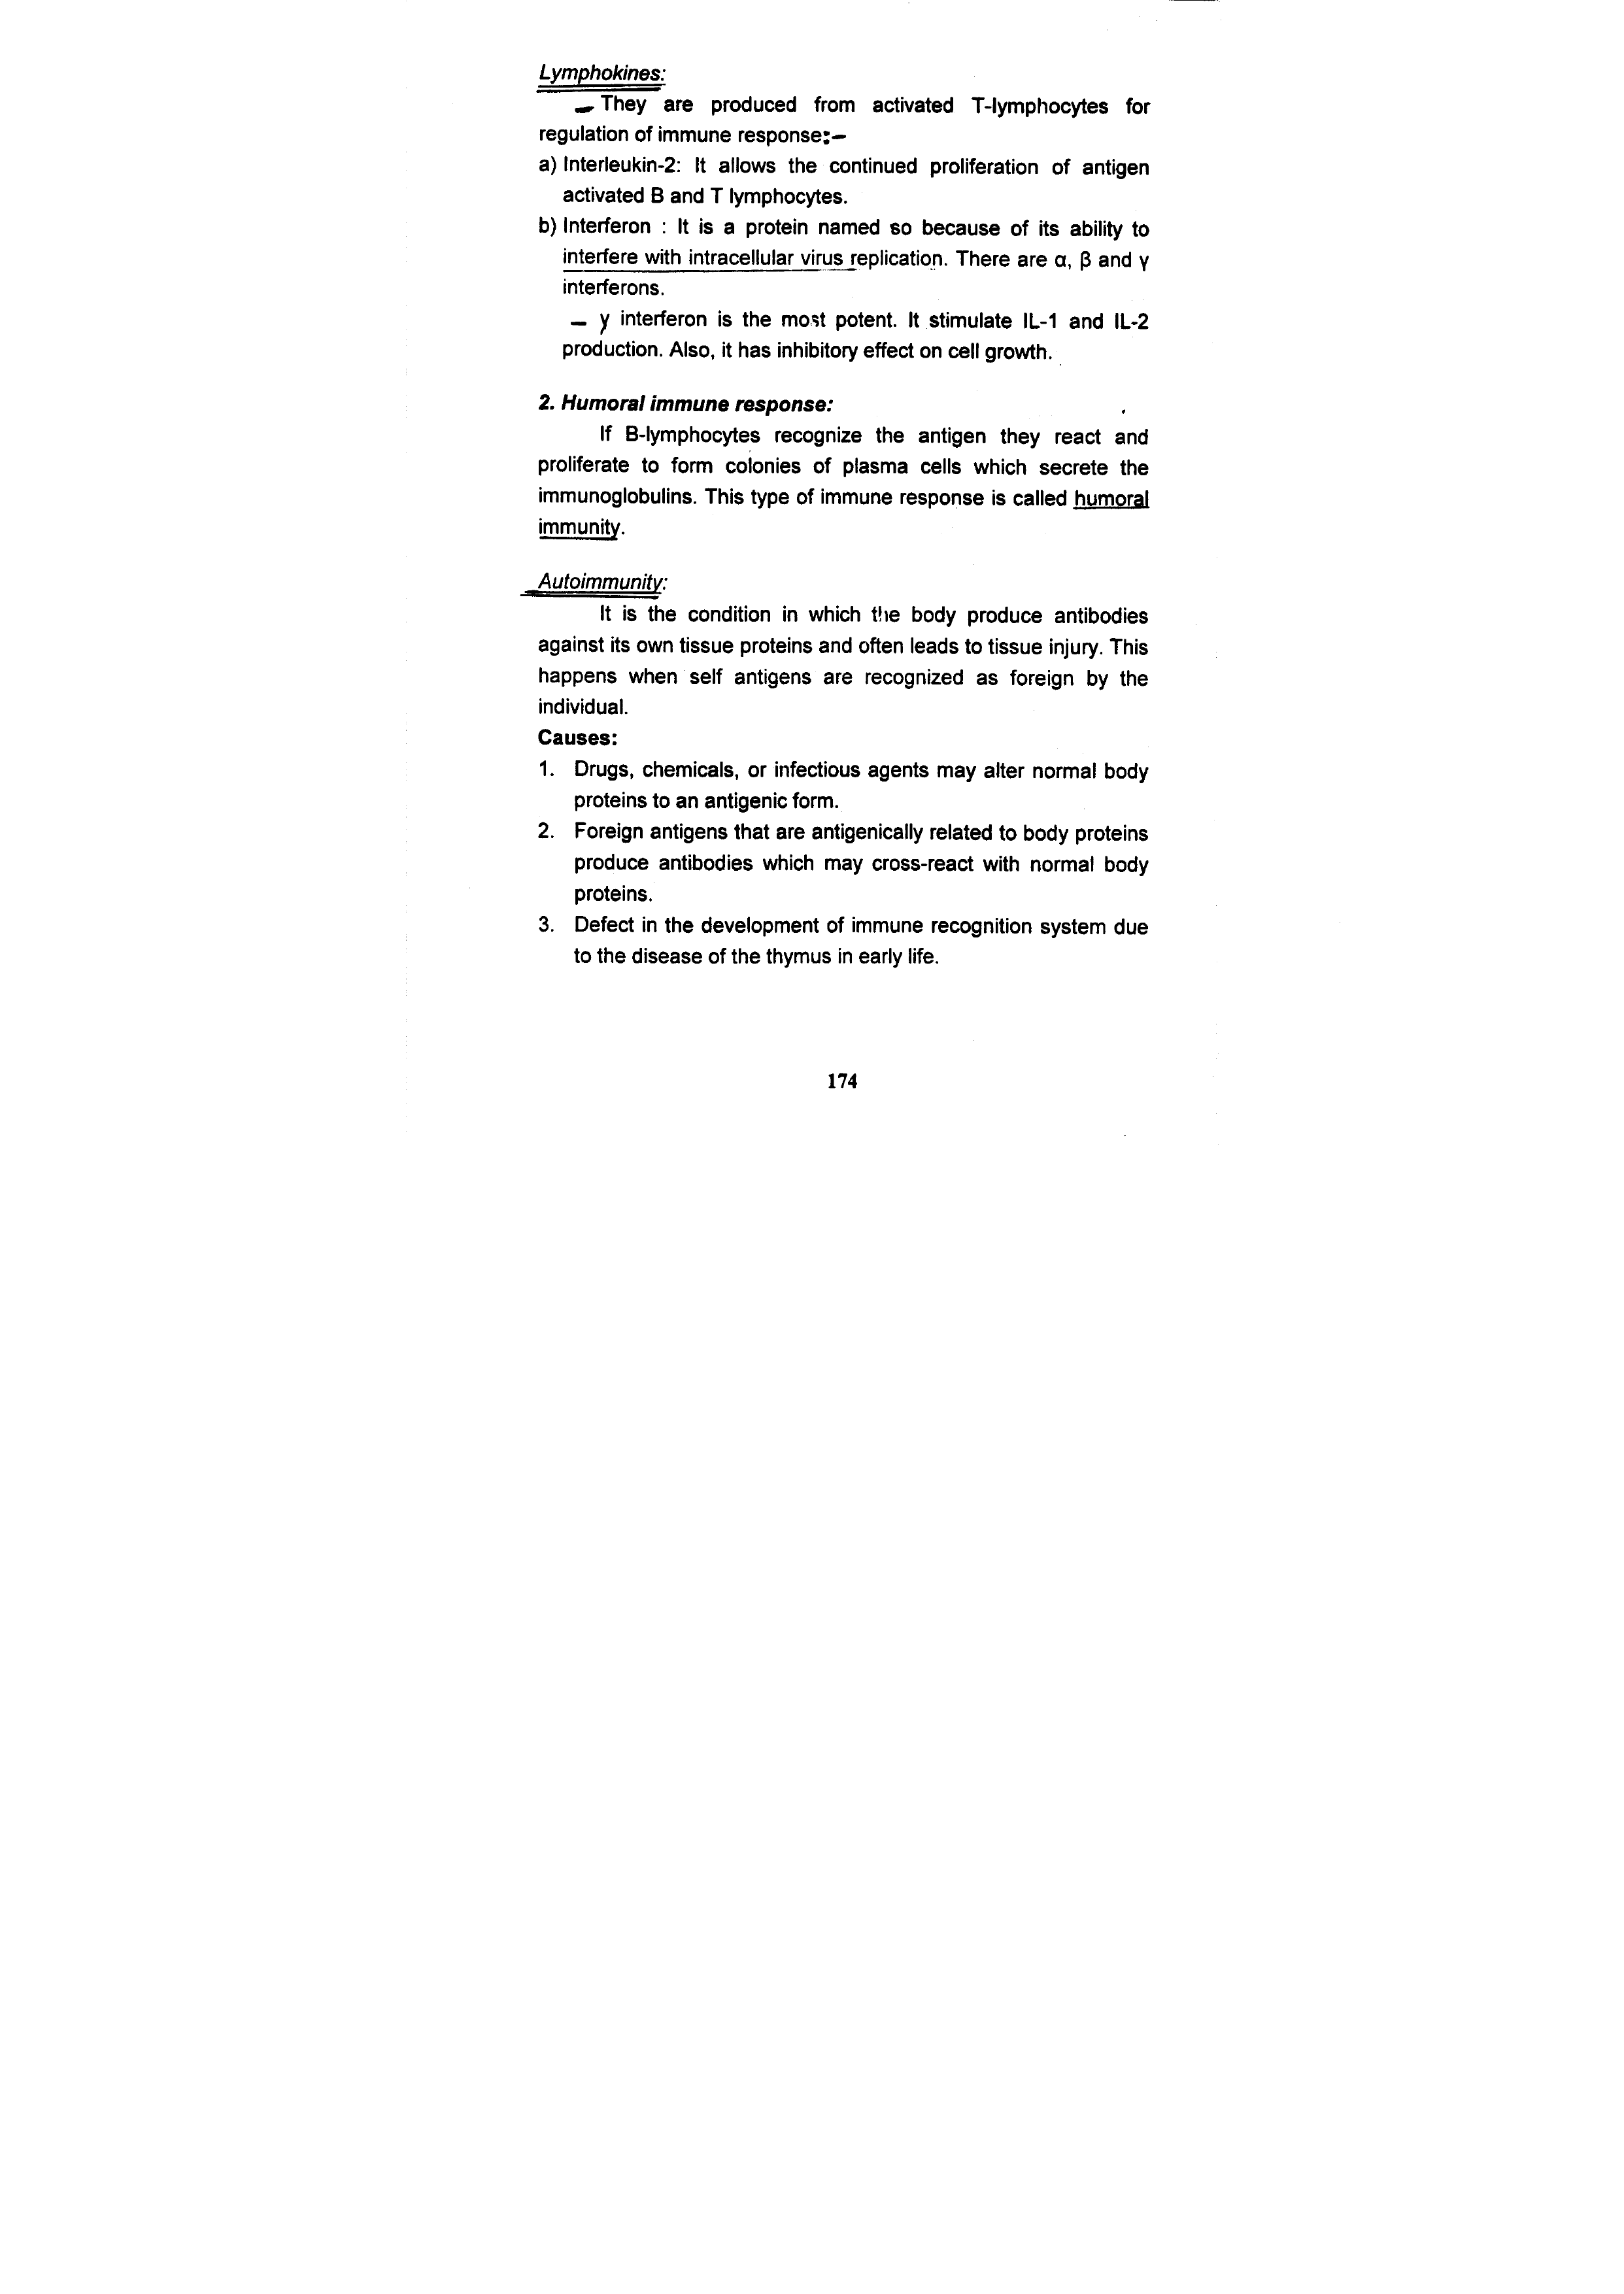 Lymphokines:
– They are produced from activated T-lymphocytes for
regulation of immune response:–
a) Interleukin-2: It allows the continued proliferation of antigen
activated B and T lymphocytes.
b) Interferon : It is a protein named so because of its ability to
interfere with intracellular virus replication. There are α, β and γ
interferons.
– γ interferon is the most potent. It stimulate IL-1 and IL-2
production. Also, it has inhibitory effect on cell growth.
2. Humoral immune response:
If B-lymphocytes recognize the antigen they react and
proliferate to form colonies of plasma cells which secrete the
immunoglobulins. This type of immune response is called humoral
immunity.
Autoimmunity:
It is the condition in which the body produce antibodies
against its own tissue proteins and often leads to tissue injury. This
happens when self antigens are recognized as foreign by the
individual.
Causes:
1. Drugs, chemicals, or infectious agents may alter normal body
proteins to an antigenic form.
2. Foreign antigens that are antigenically related to body proteins
produce antibodies which may cross-react with normal body
proteins.
3. Defect in the development of immune recognition system due
to the disease of the thymus in early life.
174